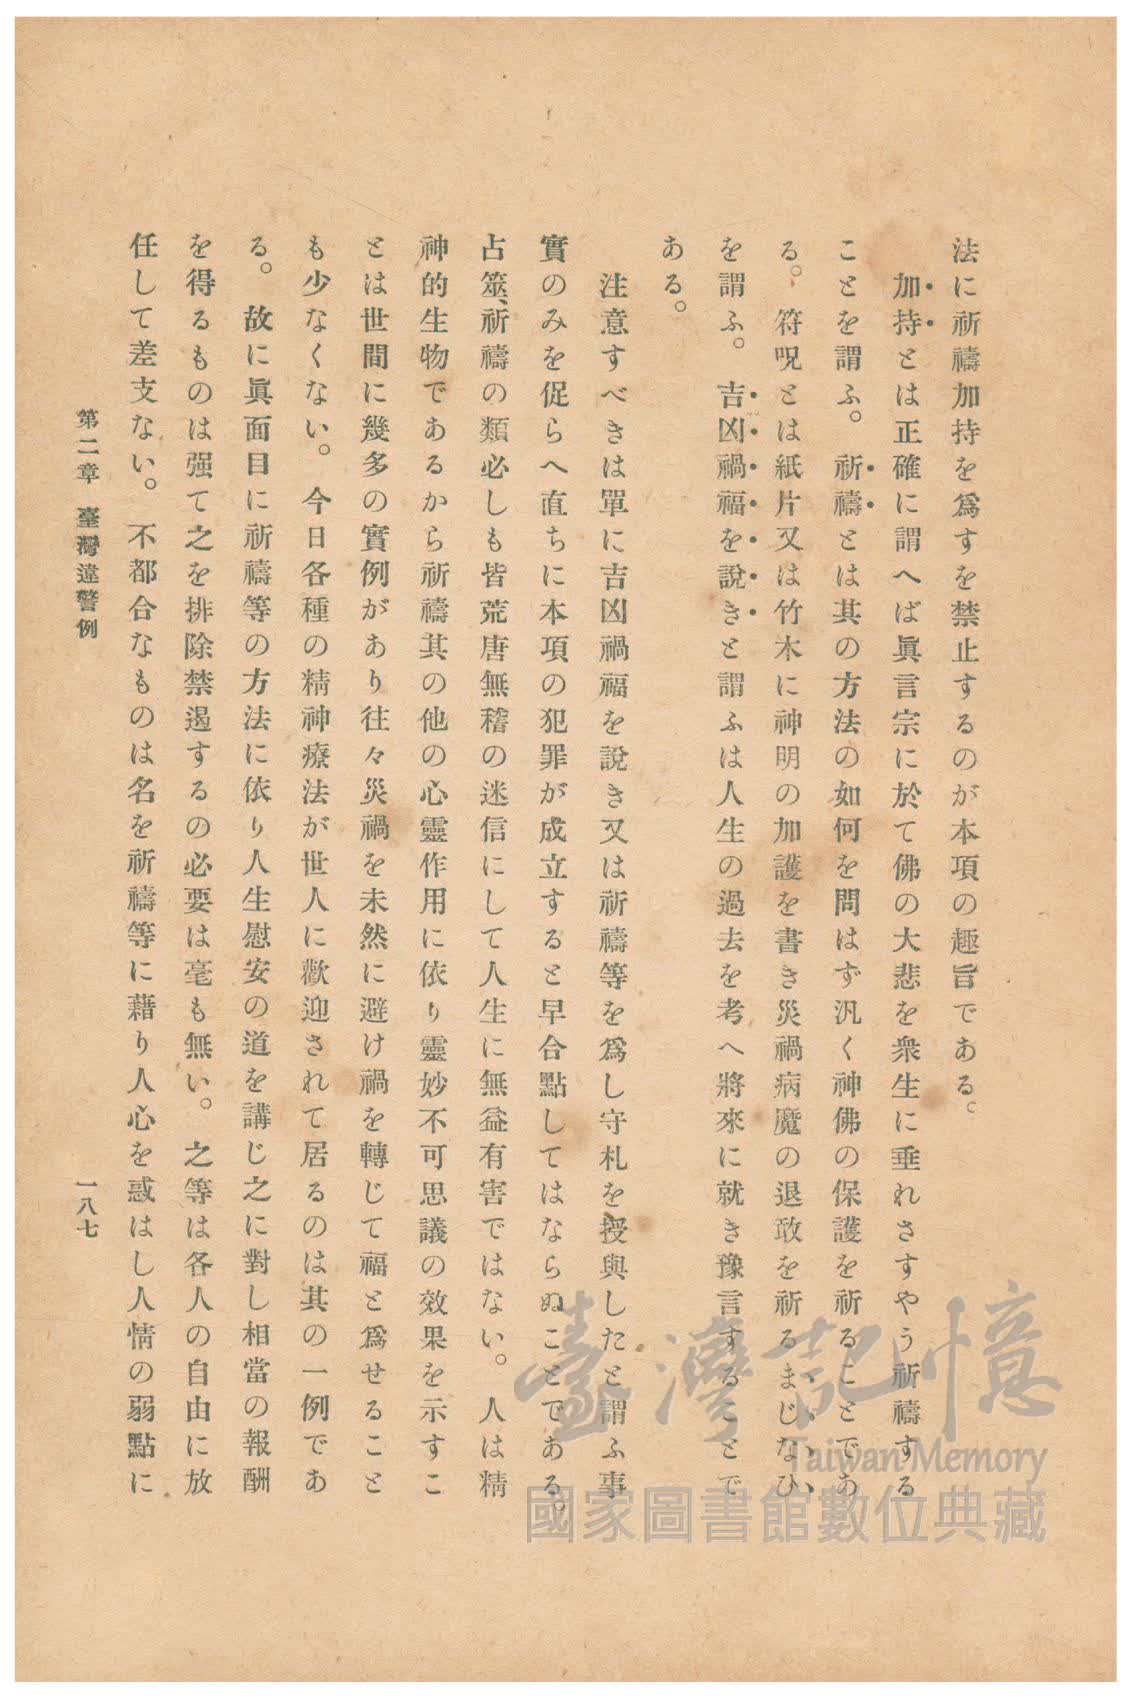 法に祈禱加持を爲すを禁止するのが本項の趣旨である。
加持とは正確に謂へば眞言宗に於て佛の大悲を衆生に垂れさすやう祈禱する
ことを謂ふ。祈禱とは其の方法の如何を問はず汎く神佛の保護を祈ることであ
る。符呪とは紙片又は竹木に神明の加護を書き災禍病魔の退散を祈るまじなひ
を謂ふ。吉凶禍福を說きと謂ふは人生の過去を考へ將來に就き豫言することで
ある。
注意すべきは單に吉凶禍福を說き又は祈禱等を爲し守札を授與したと謂ふ事
實のみを促らへ直ちに本項の犯罪が成立すると早合點してはならぬことである。
占筮、祈禱の類必しも皆荒唐無稽の迷信にして人生に無益有害ではない。人は精
神的生物であるから祈禱其の他の心靈作用に依り靈妙不可思議の效果を示すこ
とは世間に幾多の實例があり往々災禍を未然に避け禍を轉じて福と爲せること
も少なくない。今日各種の精神療法が世人に歡迎されて居るのは其の一例であ
る。故に眞面目に祈禱等の方法に依り人生慰安の道を講じ之に對し相當の報酬
を得るものは强て之を排除禁遏するの必要は毫も無い。之等は各人の自由に放
任して差支ない。不都合なものは名を祈禱等に藉り人心を惑はし人情の弱點に
第二章 臺灣違警例
一八七
臺灣記憶
Taiwan Memory
國家圖書館數位典藏